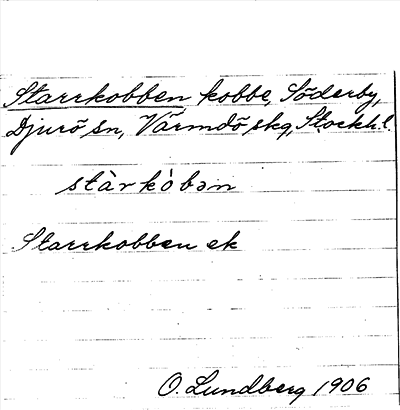 Starrkobben, kobbe, Söderby,
Djurö sn, Värmdö skg, Stockh. l.
stàrkòbən
Starrkobben ek
O. Lundberg 1906